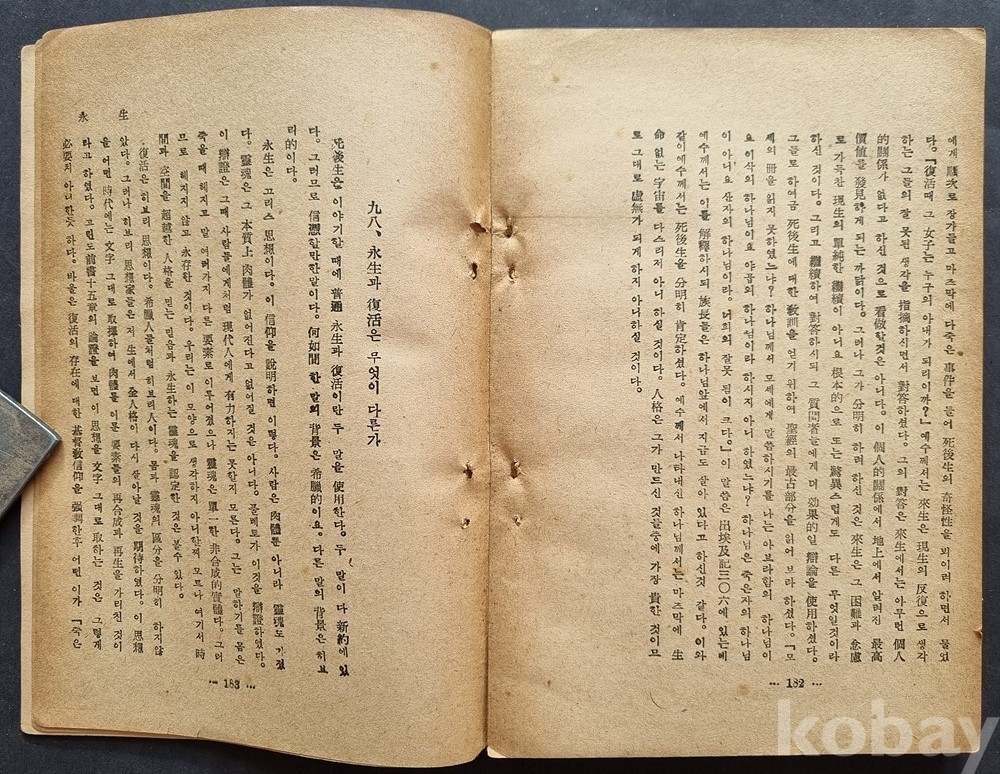 에게 順次로 장가들고 마즈막에 다 죽은 事件을 들어 死後生의 奇怪性을 뵈이려 하면서 물었
다。『復活때 그 女子는 누구의 아내가 되리이까?』 예수께서는 來生은 現生의 反復으로 생각
하는 그들의 잘 못된 생각을 指摘하시면서 對答하셨다。 그의 對答은 來生에서는 아무런 個人
的 關係가 없다고 하신 것으로 看做할것은 아니다。 이 個人的 關係에서 地上에서 알려진 最高
價値를 發見하게 되는 까닭이다。 그러나 그가 分明히 하려 하신 것은 來生은 그 困難과 念慮
로 가득찬 現生의 單純한 繼續이 아니요 根本的으로 또는 驚異스럽게도 다른 무엇일것이라
하신 것이다。 그리고 繼續하여 對答하시되 그 質問者들에게 더 効果的일 辯論을 使用하셨다。
그들로 하여금 死後生에 대한 敎訓을 얻기 위하여 聖經의 最古部分을 읽어 보라 하셨다。『모
세의 冊을 읽지 못하였느냐? 하나님께서 모세에게 말씀하시기를 나는 아브라함의 하나님이
요 이삭의 하나님이요 야곱의 하나님이라 하시지 아니 하였느냐? 하나님은 죽은자의 하나님
이 아니요 산자의 하나님이라。 너희의 잘못 된이 크다。』 이 말씀은 出埃及記三〇六에 있는베
예수께서는 이를 解釋하시되 族長들은 하나님앞에서 지금도 살아 있다고 하신것 같다。 이와
같이 예수께서는 死後生을 分明히 肯定하셨다。 예수께서 나타내신 하나님께서는 마즈막에 生
命 없는 宇宙를 다스리저 아니 하실 것이다。 人格은 그가 만드신 것들중에 가장 貴한 것이므
로 그대로 虛無가 되게 하지 아니하실 것이다。
… 182 …
永生
九八、永生과 復活은 무엇이 다른가
死後生을 이야기할 때에 普通 永生과 復活이란 두 말을 使用한다。 두 말이 다 新約에 있
다。 그러므로 信憑할만한말이다。 何如間 한 말의 背景은 希臘的이요。 다른 말의 背景은 히브
리的이다。
永生은 그리스 思想이다。 이 信仰을 說明하면 이렇다。 사람은 肉體뿐 아니라 靈魂도 가졌
다。 靈魂은 그 本質上 肉體가 없어진다고 없어질 것은 아니다。 플레토가 이것을 辯證하였다。
이 辯證은 그때 사람들에게처럼 現代人에게 有力하지는 못할지 모른다。 그는 말하기를 몸은
죽을 때 헤지고 말 여러가지 다른 要素로 이루어졌으나 靈魂은 單一한 非合成的 實體다。 그러
므로 헤지지 않고 永存한 것이다。 우리는 이 모양으로 생각하지 아니한찌 모르나 여기서 時
間과 空間을 超越한 人格을 믿는 믿음과 永生하는 靈魂을 認定한 것은 볼수 있다。
復活은 히브리 思想이다。 希臘人들처럼 히브리人이다。 몸과 靈魂의 區分을 分明히 하지않
았다。 그러나 히브리 思想家들은 저 生에서 全人格이 다시 살아날 것을 期待하였다。 이 思想
을 어떤 時代에는 文字 그대로 取擇하여 肉體를 이룬 要素들의 再合成과 再生을 가리친 것이
라고 하였다。 고린도前書十五章의 論證을 보면 이 思想을 文字 그대로 取하는 것은 그렇게
必要치 아니한듯 하다。 바울은 復活의 存在에 대한 基督敎信仰을 强調한후 어떤 이가 『죽은
… 183 …
kobay